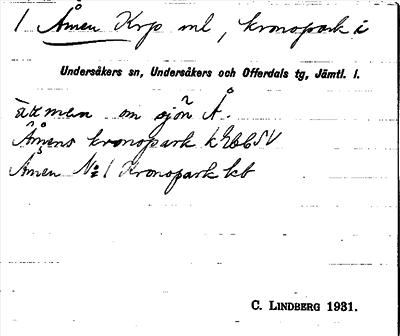 1 Åmen Krp ml, kronopark i
Undersåkers sn, Undersåkers och Offerdals tg, Jämtl. l.
äxmen om sjön Å.
Åmens kronopark
Åmen No 1 Kronopark kb
C. LINDBERG 1931.